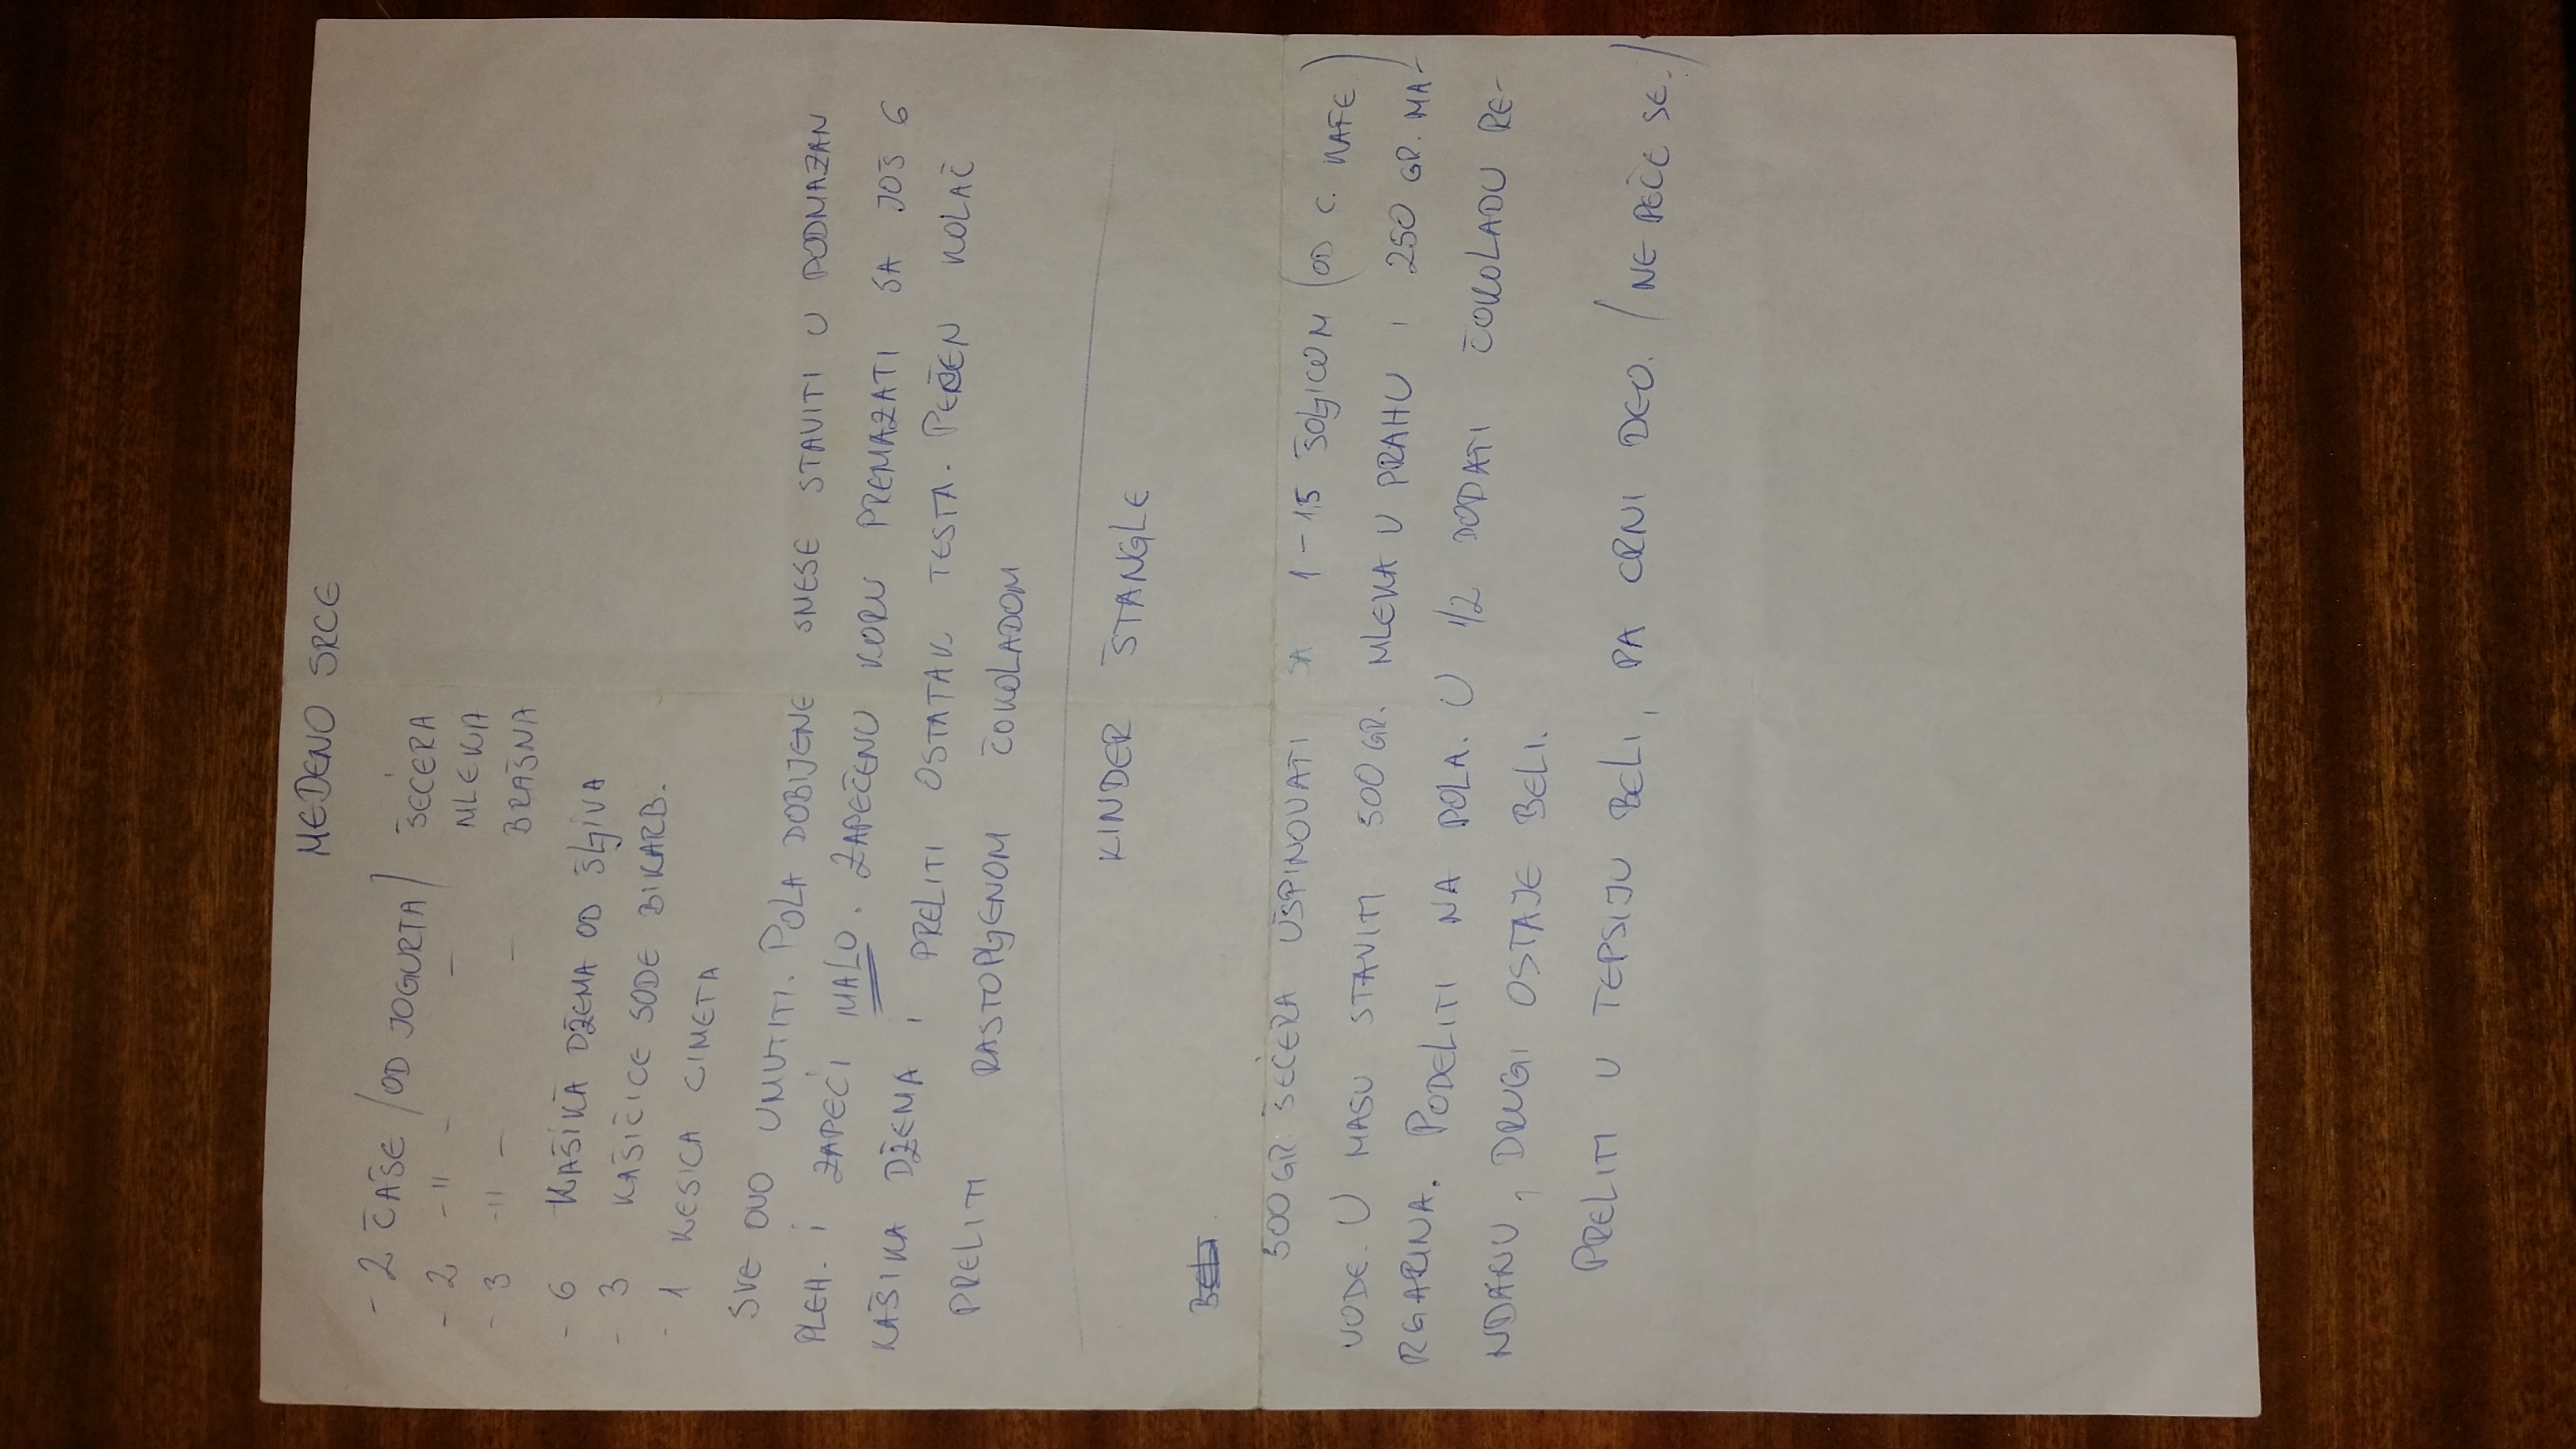 MEDENO SRCE
- 2 ČAŠE /OD JOGURTA/ ŠEĆERA
- 2 -"- - MLEKA
- 3 -"- - BRAŠNA
- 6 KAŠIKA DŽEMA OD ŠLJIVA
- 3 KAŠIČICE SODE BIKARB.
- 1 KESICA CIMETA
SVE OVO UMUTITI. POLA DOBIJENE SMESE STAVITI U PODMAZAN
PLEH. I ZAPEĆI MALO. ZAPEČENU KORU PREMAZATI SA JOŠ 6
KAŠIKA DŽEMA I PRELITI OSTATAK TESTA. PEČEN KOLAČ
PRELITI RASTOPLJENOM ČOKOLADOM
KINDER ŠTANGLE
500 GR. ŠEĆERA UŠPINOVATI SA 1-1,5 ŠOLJICOM (OD C. KAFE)
VODE. U MASU STAVITI 500 GR. MLEKA U PRAHU I 250 GR. MA-
RGARINA. PODELITI NA POLA. U 1/2 DODATI ČOKOLADU RE-
NDANU, DRUGI OSTAJE BELI.
PRELITI U TEPSIJU BELI, PA CRNI DEO. /NE PEČE SE./